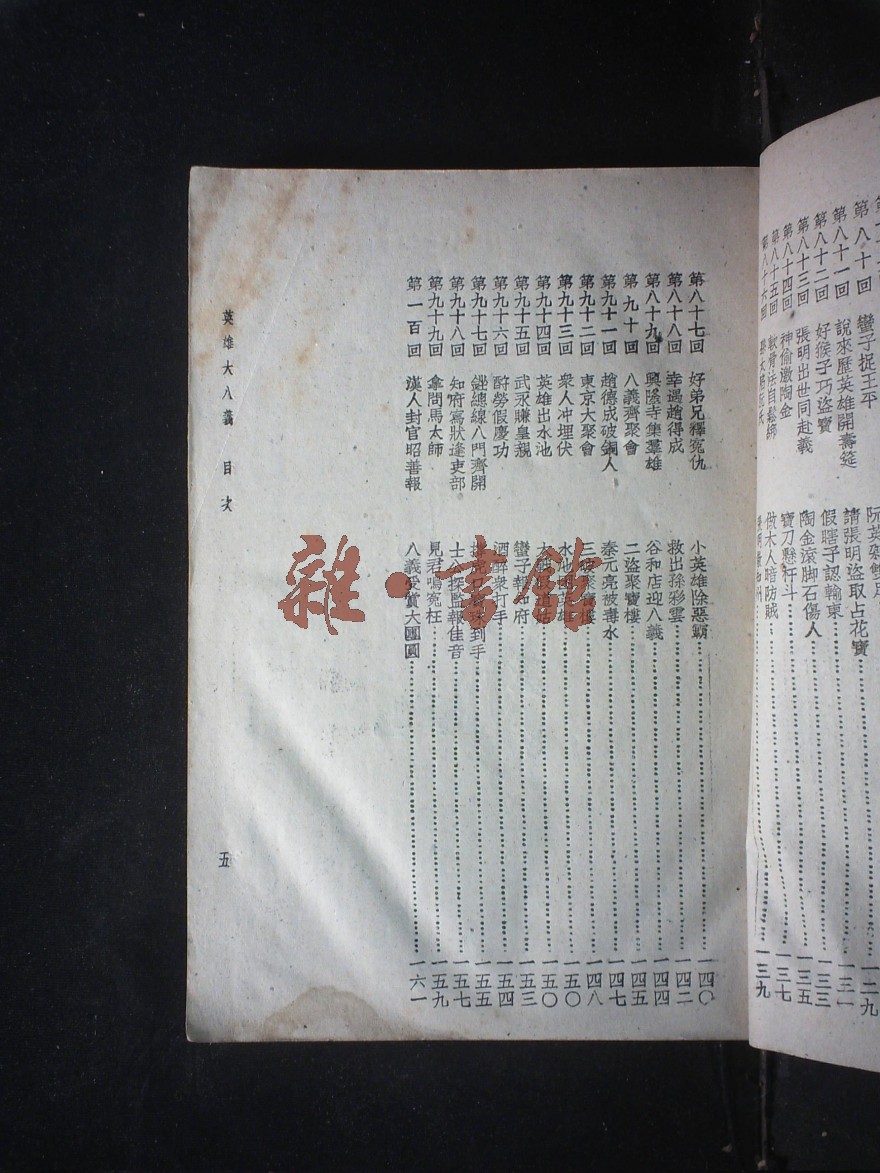 第八十回 蠻子捉王平
請張明盜取占花寶 一二九
第八十一回 說來歷英雄開壽筵
假瞎子認輸東 一三一
第八十二回 好猴子巧盜寶
陶金滾脚石傷人 一三三
第八十三回 張明出世同赴義
寶刀懸杆斗 一三五
第八十四回 神偷激陶金
做木人暗防賊 一三七
第八十五回 軟骨法自鬆綁
一三九
第八十六回
第八十七回 好弟兄釋冤仇 小英雄除惡霸 一四〇
第八十八回 幸遇趙得成 救出孫彩雲 一四二
第八十九回 興隆寺集羣雄 谷和店迎八義 一四四
第九十回 八義齊聚會 二盜聚寶樓 一四五
第九十一回 趙德成破銅人 秦元亮被毒水 一四七
第九十二回 東京大聚會 三破聚寶樓 一四八
第九十三回 衆人冲埋伏 水池 一五〇
第九十四回 英雄出水池 一五〇
第九十五回 武永賺皇親 蠻子報知府 一五三
第九十六回 酹勞假慶功 酒醉衆打手 一五四
第九十七回 總線八門齊開 珠到手 一五五
第九十八回 知府寫狀逢吏部 士公探監報佳音 一五七
第九十九回 拿問馬太師 見君鳴冤枉 一五九
第一百回 漢人封官昭善報 八義受賞大團圓 一六一
英雄大八義 目次
五
雜·書館